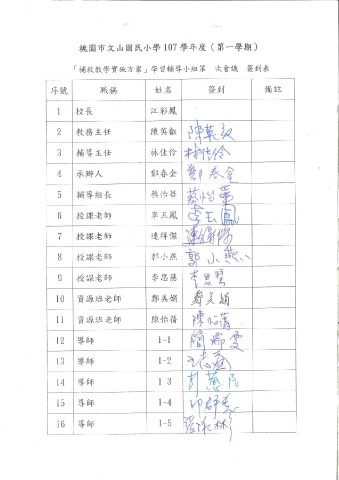 桃園市文山國民小學 107 學年度（第一學期）
「補救教學實施方案」學習輔導小組第 次會議 簽到表
序號 職稱 姓名 簽到 備註
1 校長 江彩鳳
2 教務主任 陳英叡 陳英叡
3 輔導主任 林佳伶 林佳伶
4 承辦人 鄭春金 鄭春金
5 輔導組長 蔡怡蓁 蔡怡蓁
6 授課老師 李玉鳳 李玉鳳
7 授課老師 連得傑
8 授課老師 郭小燕 郭小燕
9 授課老師 李思慧
10 資源班老師 鄭美娟 鄭美娟
11 資源班老師 陳怡蒨 陳怡蒨
12 導師 1-1
13 導師 1-2
14 導師 1 3
15 導師 1-4
16 導師 1-5